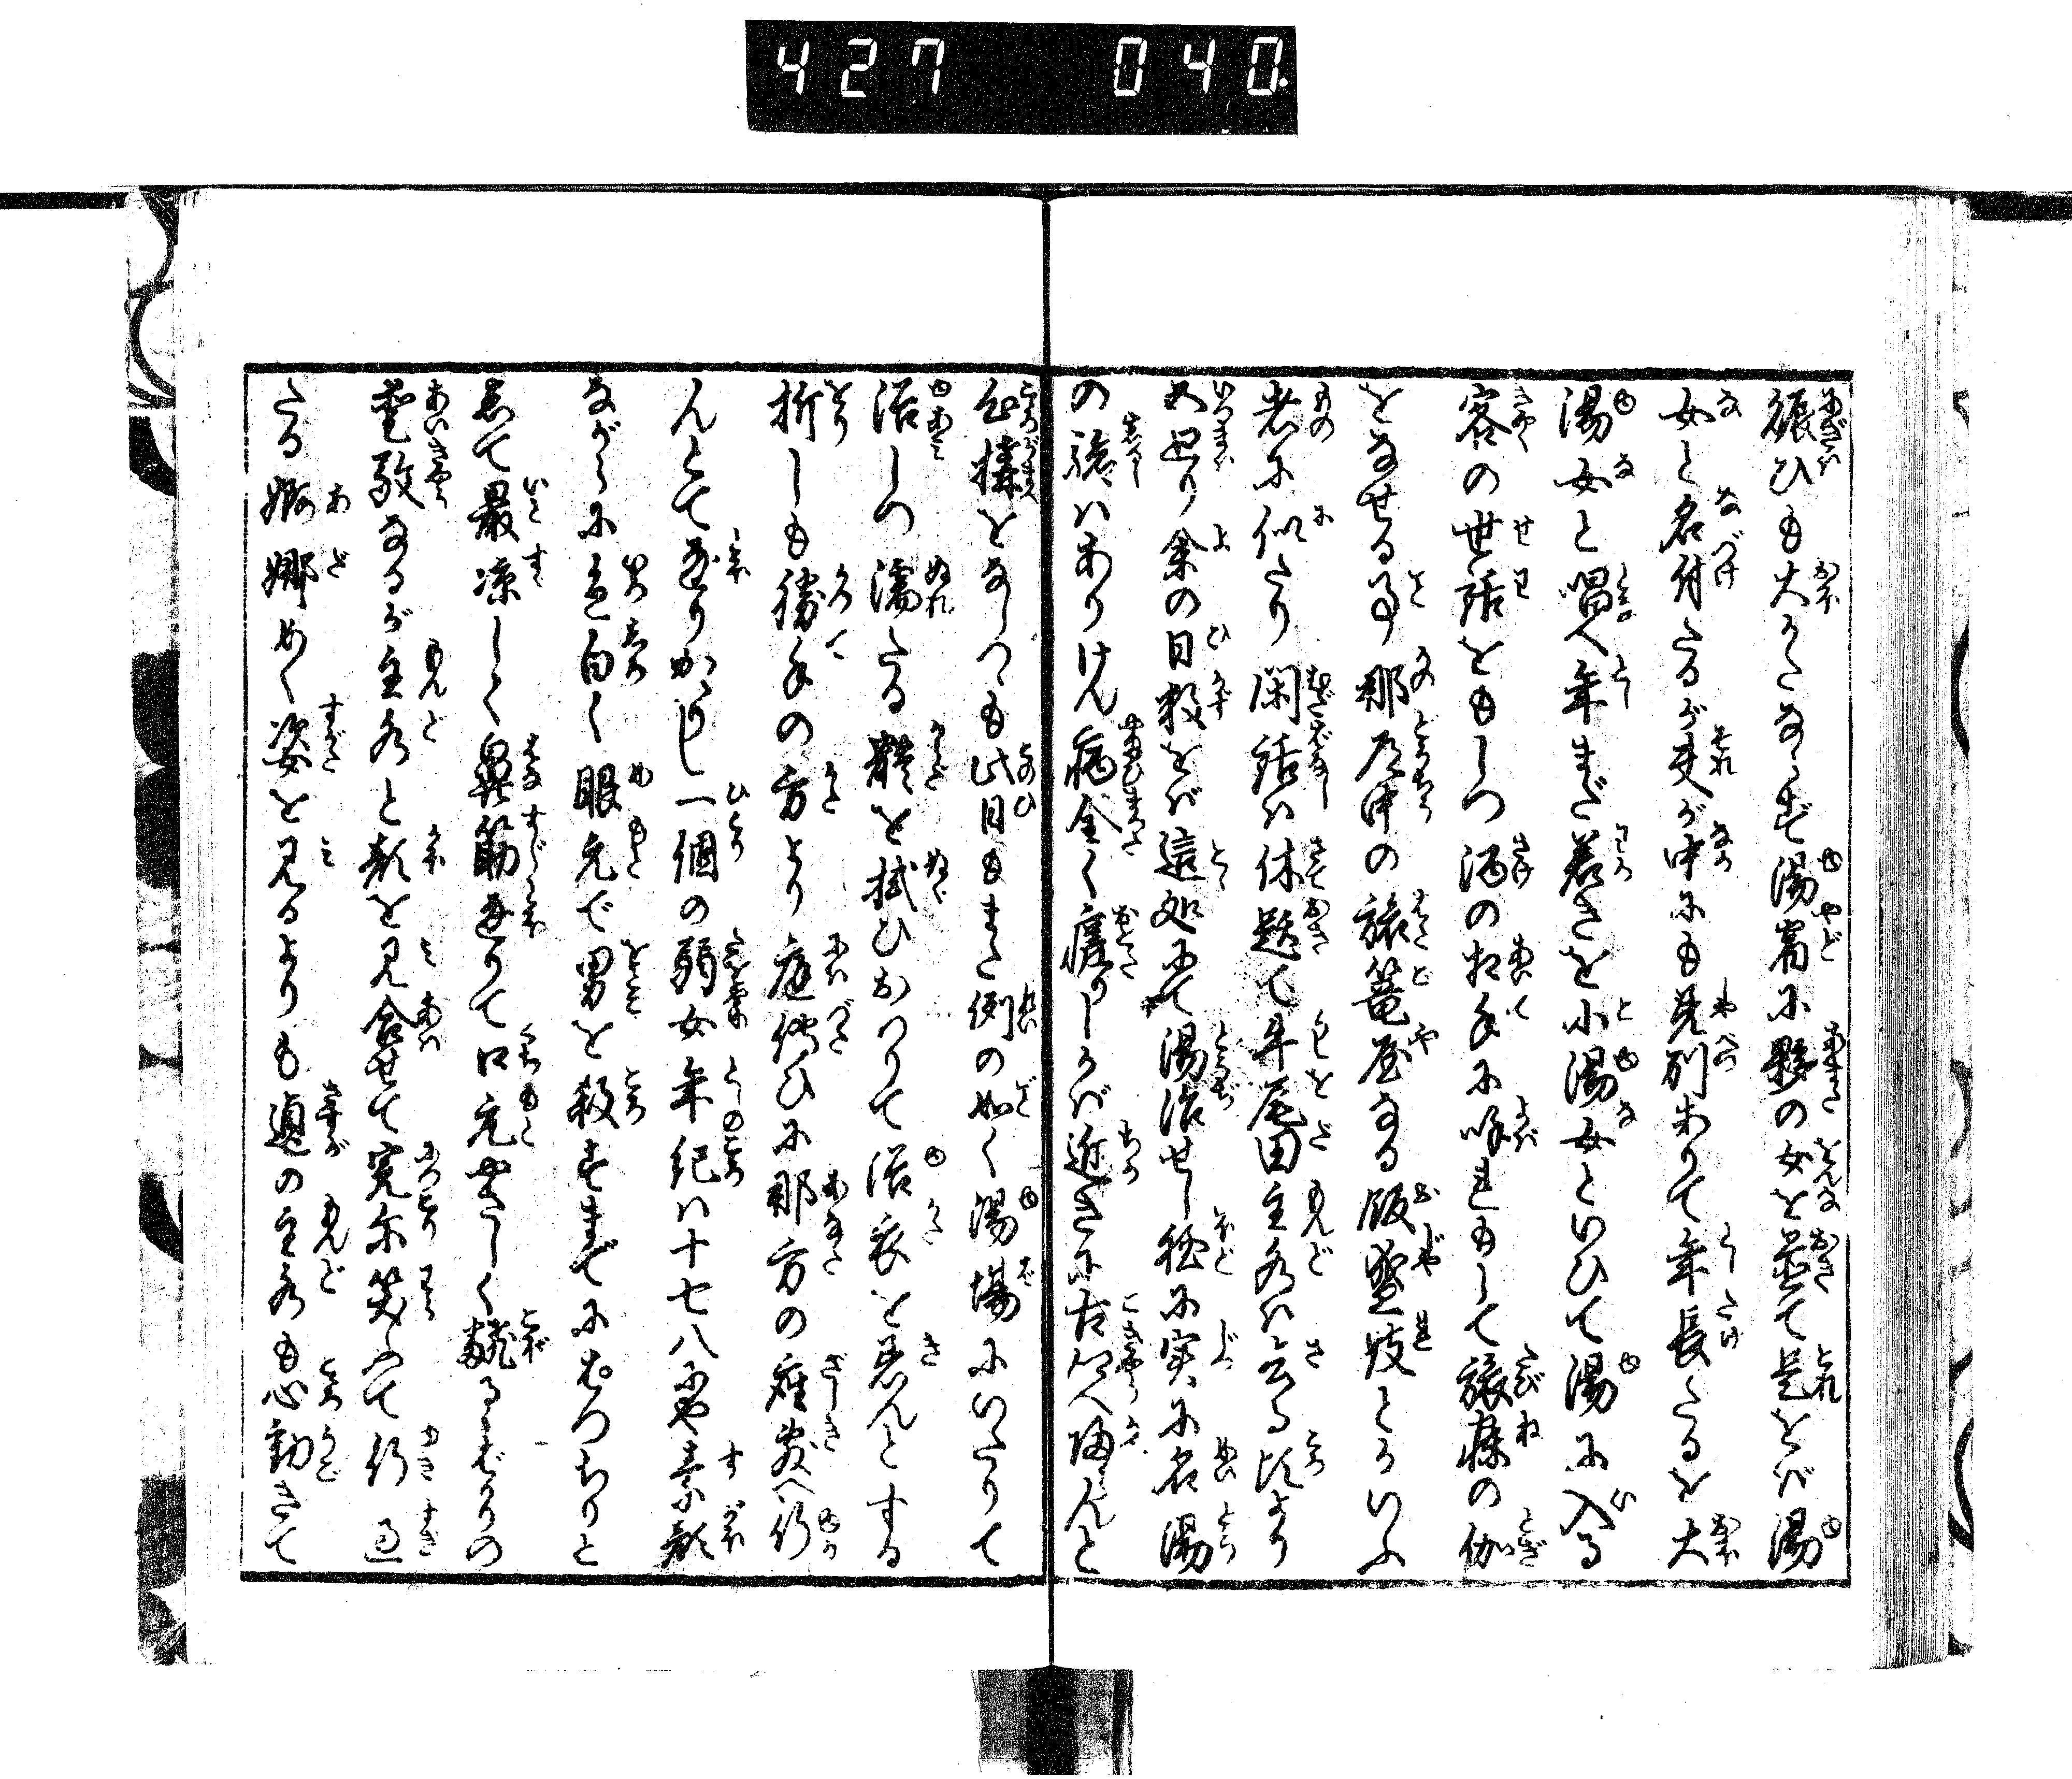 427 040.
賑ひも大かたならず湯宿に夥の女を置て是をば湯
女と名付たるが夫が中にも差別ありて年長たるを大
湯女と唱へ年まだ若きを小湯女といひて湯に入る
客の世話をもしつ酒の相手に呼れもして旅寐の伽
をなせる事那道中の旅篭屋なる飯盛妓とかいふ
者に似たり閑話は休題て牛尾田主水は去る頃より
五廻り余の日数をば這処にて湯治せし程に実に名湯
の験はありけん病全く癒りしかば近きに古郷へ帰らんと
心構をなしつゝも此日もまた例の如く湯場にいたりて
浴しつ濡たる体を拭ひおはりて浴衣を着んとする
折しも勝手の方より庭伝ひに那方の座敷へ行
んとて通りかゝりし一個の弱女年紀は十七八にや素顔
ながらに色白く眼元で男を殺すまでにはつちりと
して最凉しく鼻筋通りて口元やさしく翻るゝばかりの
愛敬なるが主水と顔を見合せて莞尓笑ふて行過
たる婀娜めく姿を見るよりも遉の主水も心動きて